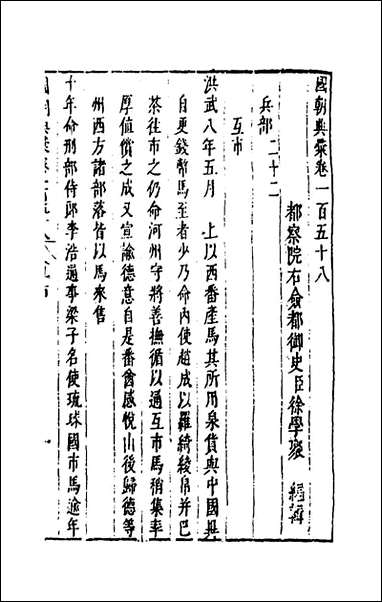 國朝典彙卷一百五十八
都察院右僉都御史臣徐學聚 編輯
兵部二十二
互市
洪武八年五月 上以西番產馬其所用泉貨與中國異
自更錢幣馬至者少乃命內使趙成以羅綺綾帛并巴
茶往市之仍命河州守將善撫循以通互市馬稍集率
厚值償之成又宣諭德意自是番酋感悅山後歸德等
州西方諸部落皆以馬來售
十年命刑部侍郎李浩通事梁子名使琉球國市馬逾年